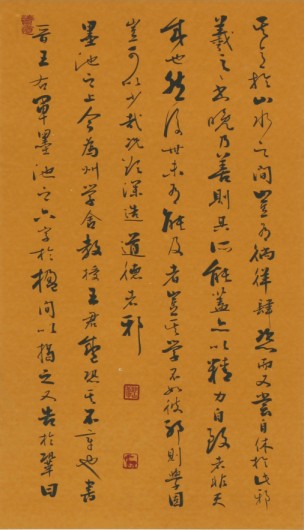 其意於山水之间岂有徜徉肆恣而又尝自休於此邪
羲之之书晚乃善则其所能盖亦以精力自致者非天
成也然後世未有能及者岂其学不如彼邪则学固
岂可以少哉况欲深造道德者邪
墨池之上今为州学舍教授王君盛恐其不章也书
晋王右军墨池之六字於楹间以揭之又告於巩曰